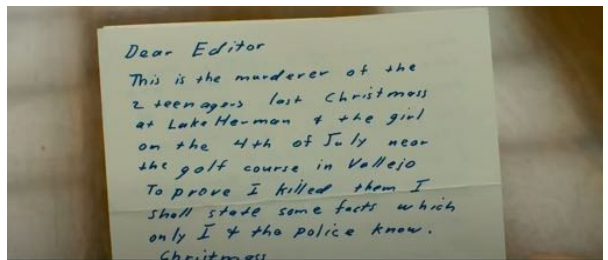 Dear Editor
This is the murderer of the
2 teenagers last Christmass
at Lake Herman & the girl
on the 4th of July near
the golf course in Vallejo
To prove I killed them I
shall state some facts which
only I & the police know.
Christmass